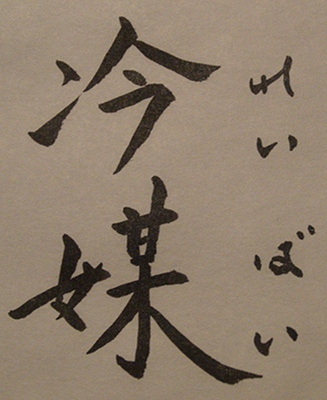 冷媒
れいばい